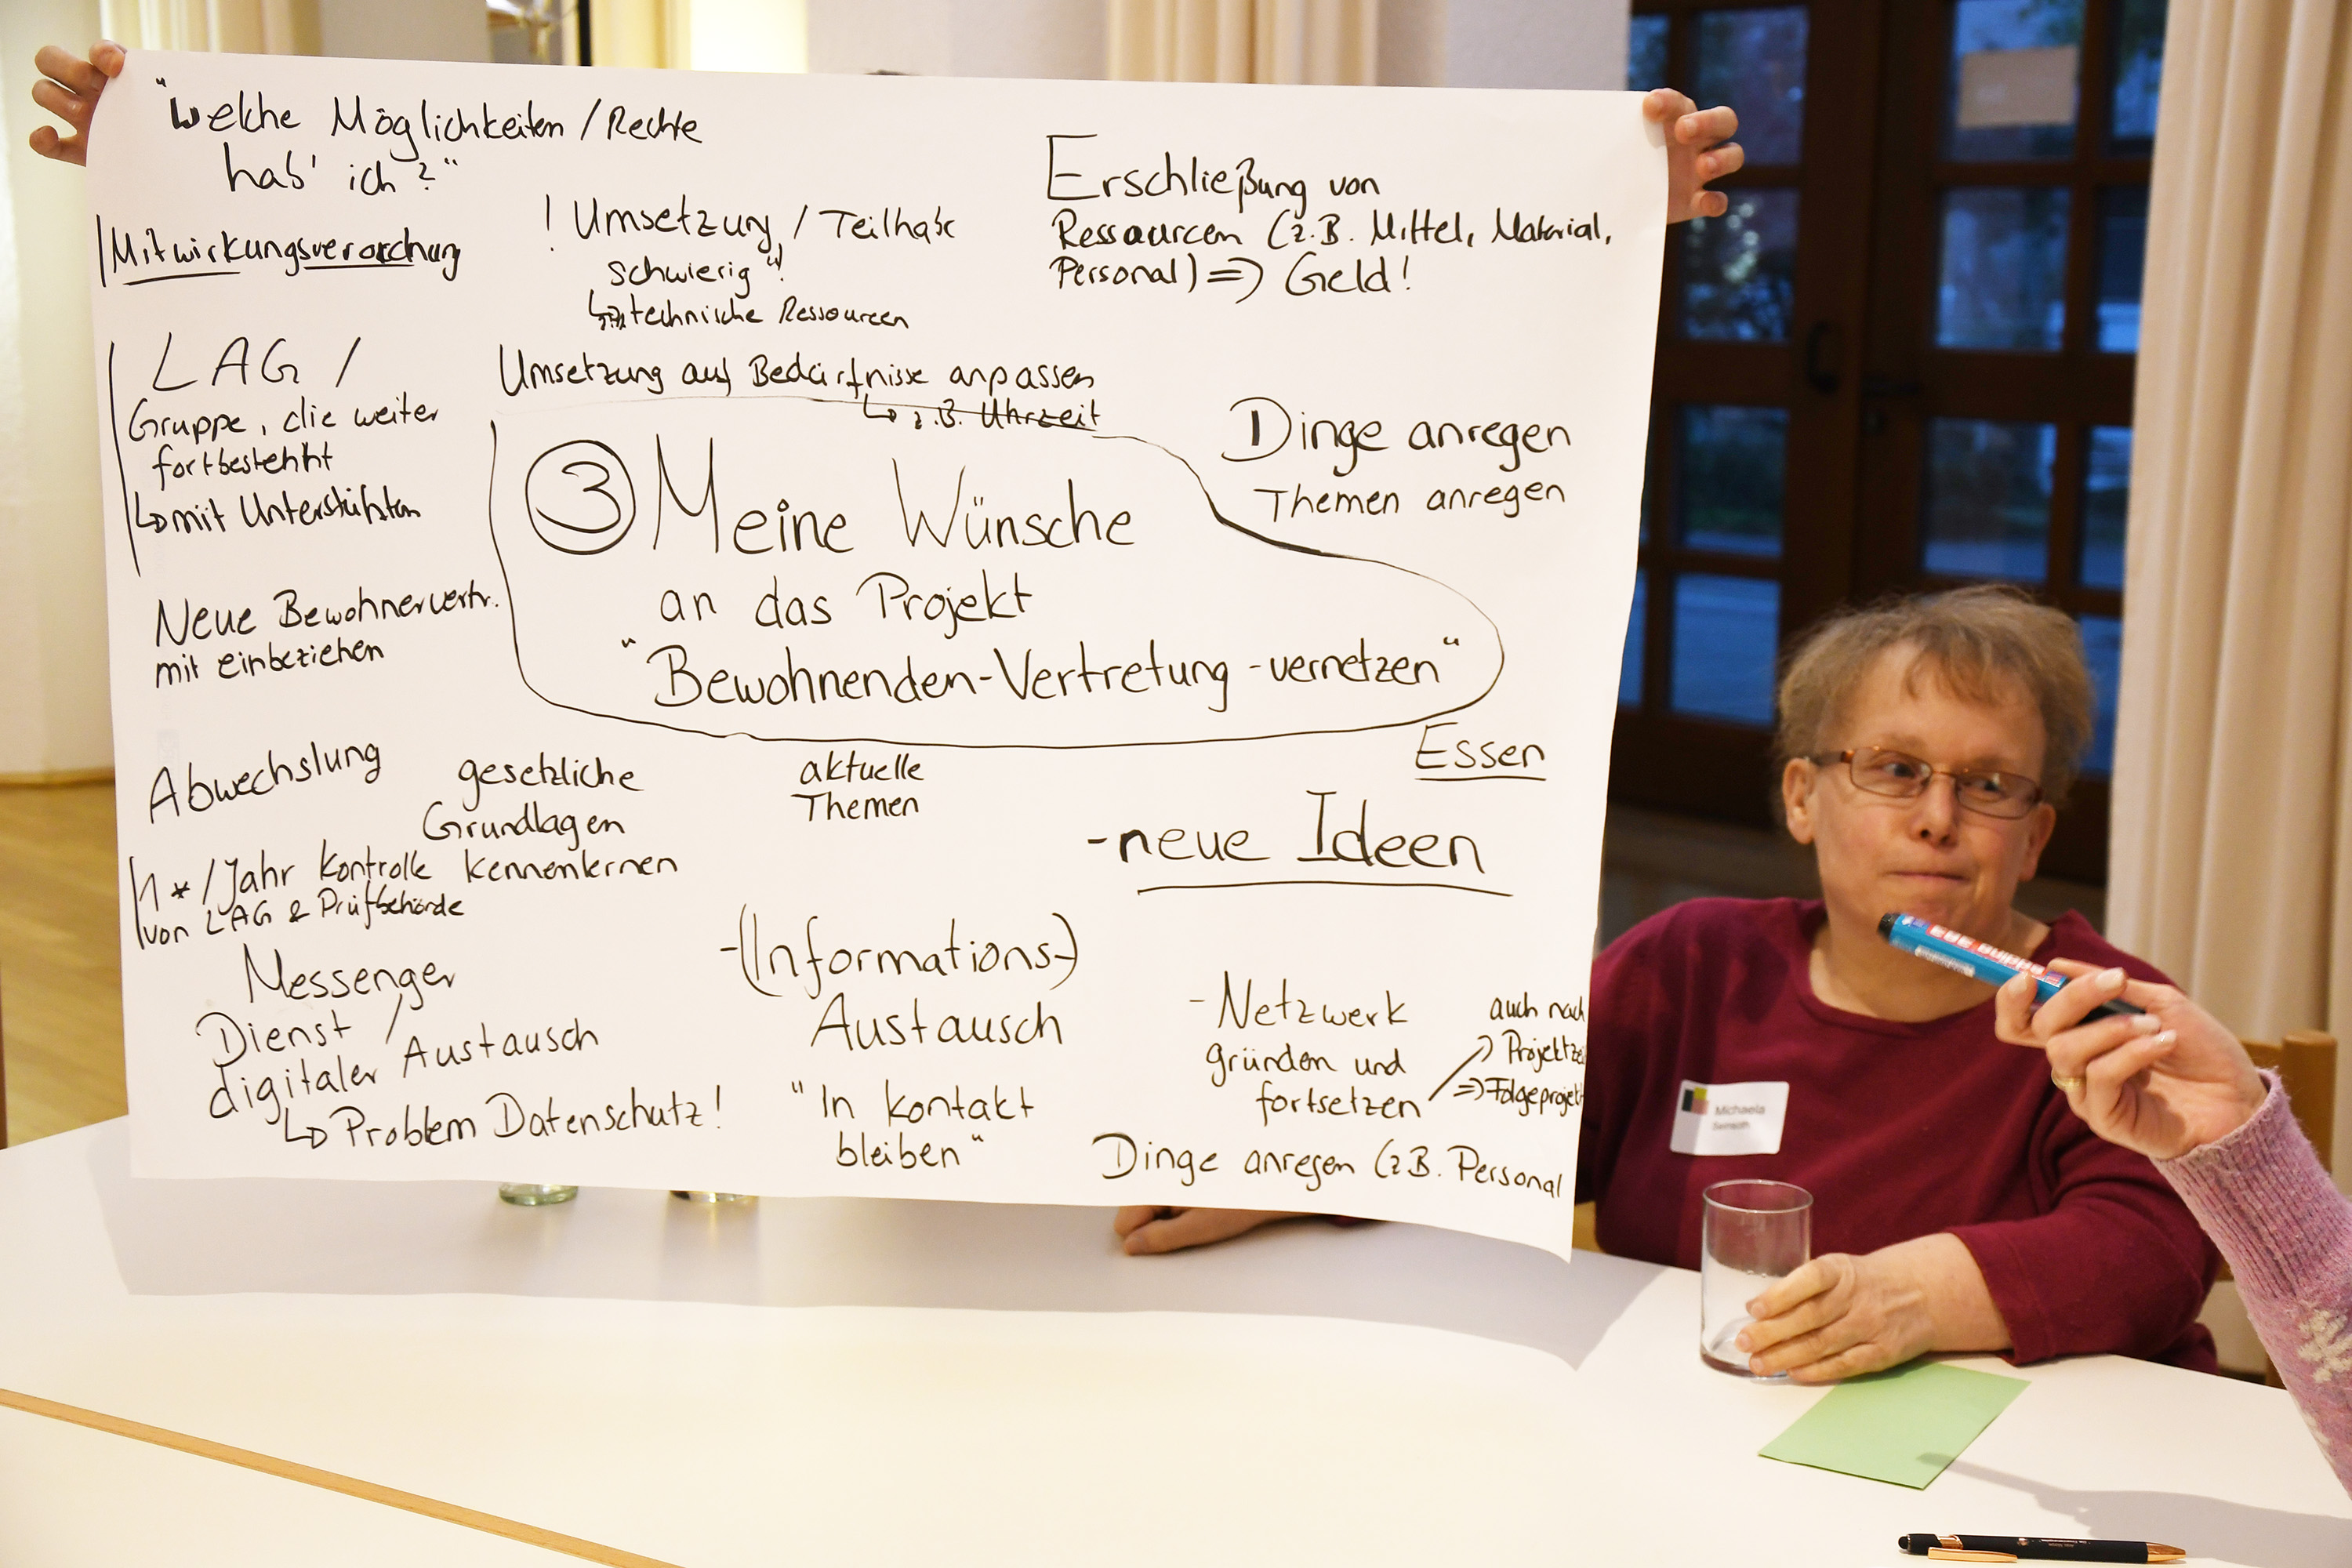 "Welche Möglichkeiten / Rechte
hab' ich?"
Mitwirkungsverordnung
! Umsetzung / Teilhabe
schwierig"!
technische Ressourcen
Erschließung von
Ressourcen (z.B. Mittel, Material,
Personal) => Geld!
LAG /
Gruppe, die weiter
fortbesteht
↳ mit Unterstützten
Umsetzung auf Bedürfnisse anpassen
↳ z.B. Uhrzeit
Dinge anregen
Themen anregen
③ Meine Wünsche
an das Projekt
"Bewohnenden-Vertretung -vernetzen"
Neue Bewohnervertr.
mit einbeziehen
Abwechslung
gesetzliche
Grundlagen
Kennenlernen
aktuelle
Themen
Essen
-neue Ideen
1*/Jahr Kontrolle
von LAG & Prüfbehörde
Messenger
Dienst /
digitaler Austausch
↳ Problem Datenschutz!
-(Informations-)
Austausch
"In Kontakt
bleiben"
- Netzwerk
gründen und
fortsetzen
auch nach
=> Folgeprojekt
Dinge anregen (z.B. Personal
edding
Michaela